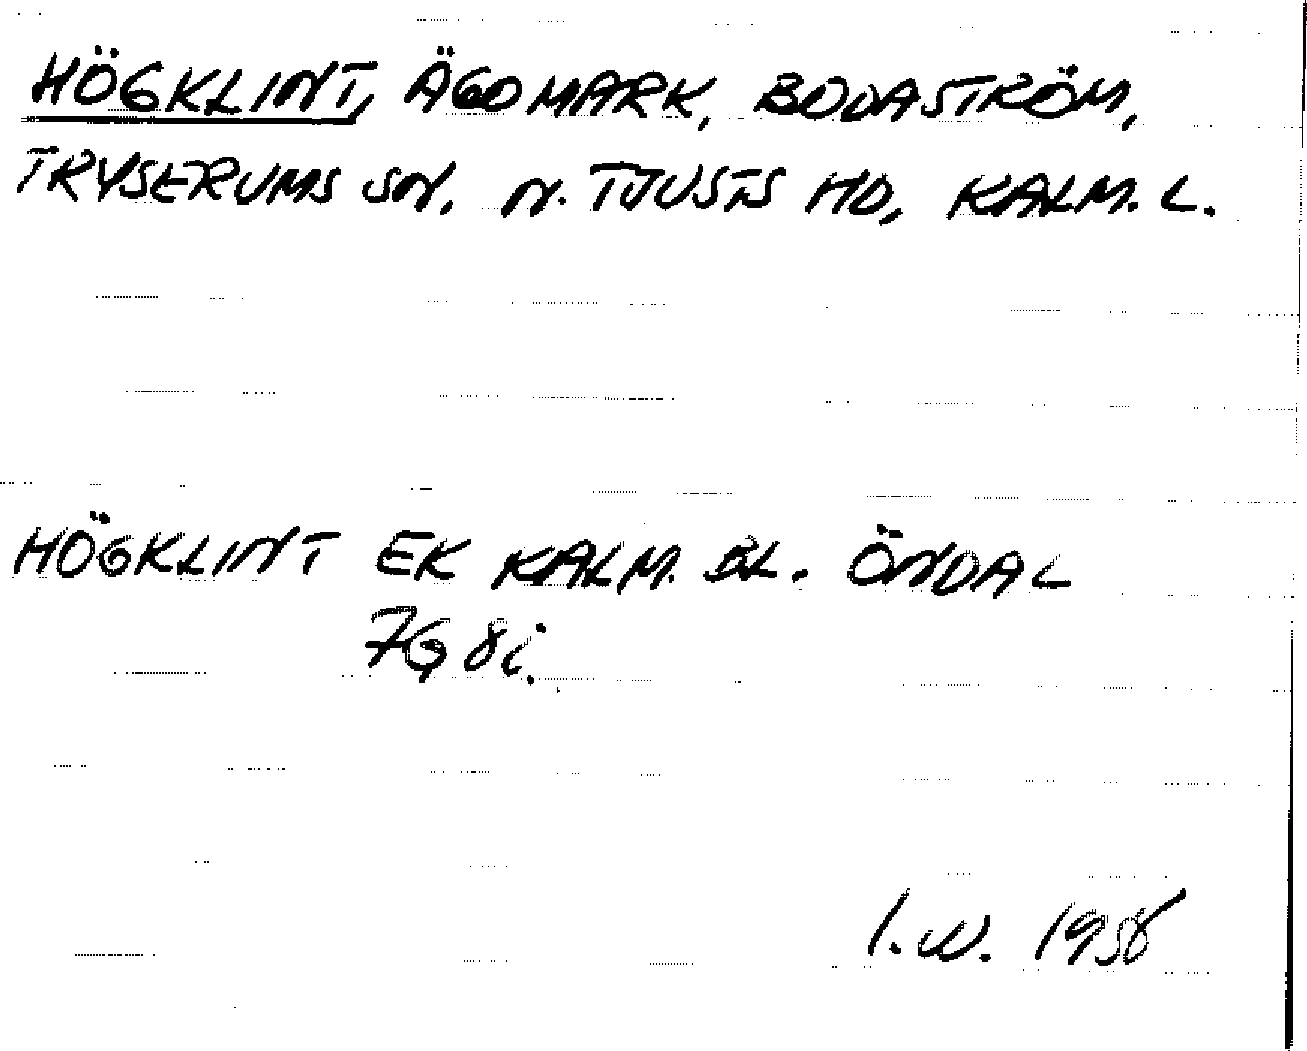 HÖGKLINT, ÄGOMARK, BODASTRÖM,
TRYSERUMS SN. N. TJUSTS HD, KALM. L.
HÖGKLINT EK KALM. BL. ÖNDAL
7G 8i.
I.W. 1958